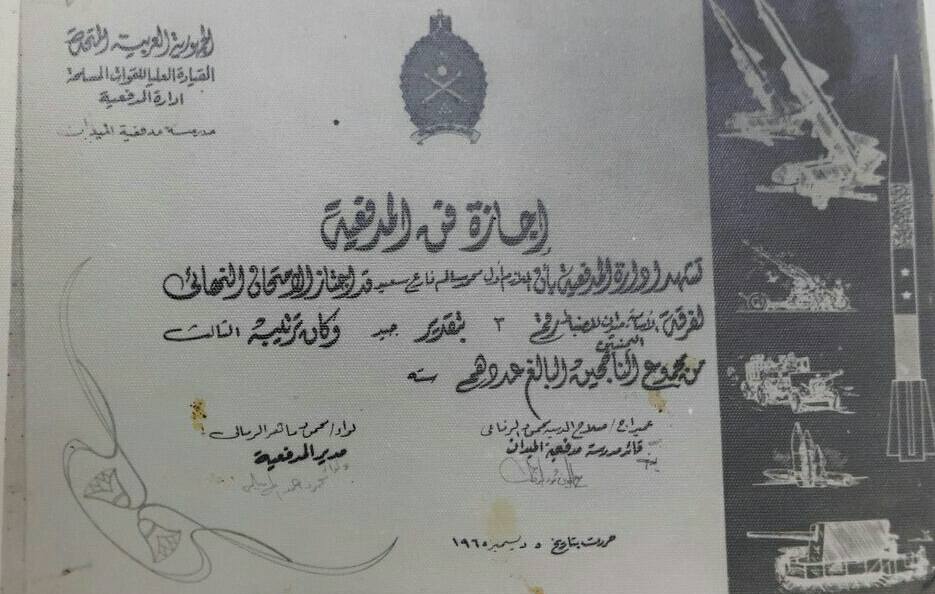 الجمهورية العربية المتحدة
القيادة العليا للقوات المسلحة
ادارة المدفعية
مدرسة مدفعية الميدان
اجازة فن المدفعية
تشهد ادارة المدفعية بأن الملازم أول سعيد قد اجتاز الامتحان النهائى
لفرقة للضباط رقم ٣ بتقدير جيد وكان ترتيبه الثالث
اليمنيين
من مجموع الناجحين البالغ عددهم سته
عميد أح / صلاح الدين محمود الرفاعى
قائد مدرسة مدفعية الميدان
لواء / محمود ماهر الرمالى
مدير المدفعية
حررت بتاريخ ٥ ديسمبر ١٩٦٥